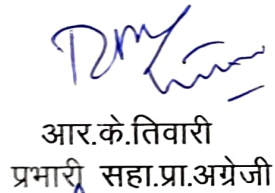 आर.के.तिवारी
प्रभारी सहा.प्रा.अग्रेजी